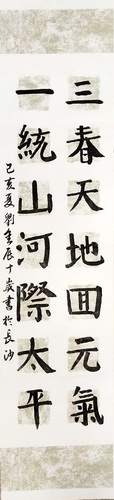 三春天地回元氣
一統山河際太平
己亥夏劉奎辰十歲書於長沙